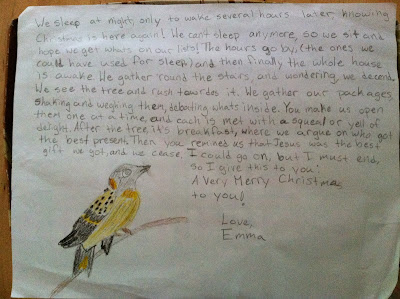 We sleep at night, only to wake several hours later knowing
Christmas is here again! We can't sleep anymore, so we sit and
hope we get whats on our lists! The hours go by, (the ones we
could have used for sleep) and then finally the whole house
is awake. We gather 'round the stars, and wondering, we decend.
We see the tree and rush tourdes it. We gather our packages,
shaking and weighing them, debating whats inside. You make us open
them one at a time, and each is met with a squeal or yell of
delight. After the tree it's breakfast, where we argue on who got
the best present. Then you remined us that Jesus was the best
gift we got, and we cease. I could go on, but I must end,
so I give this to you:
A Very Merry Christmas
to you!
Love,
Emma